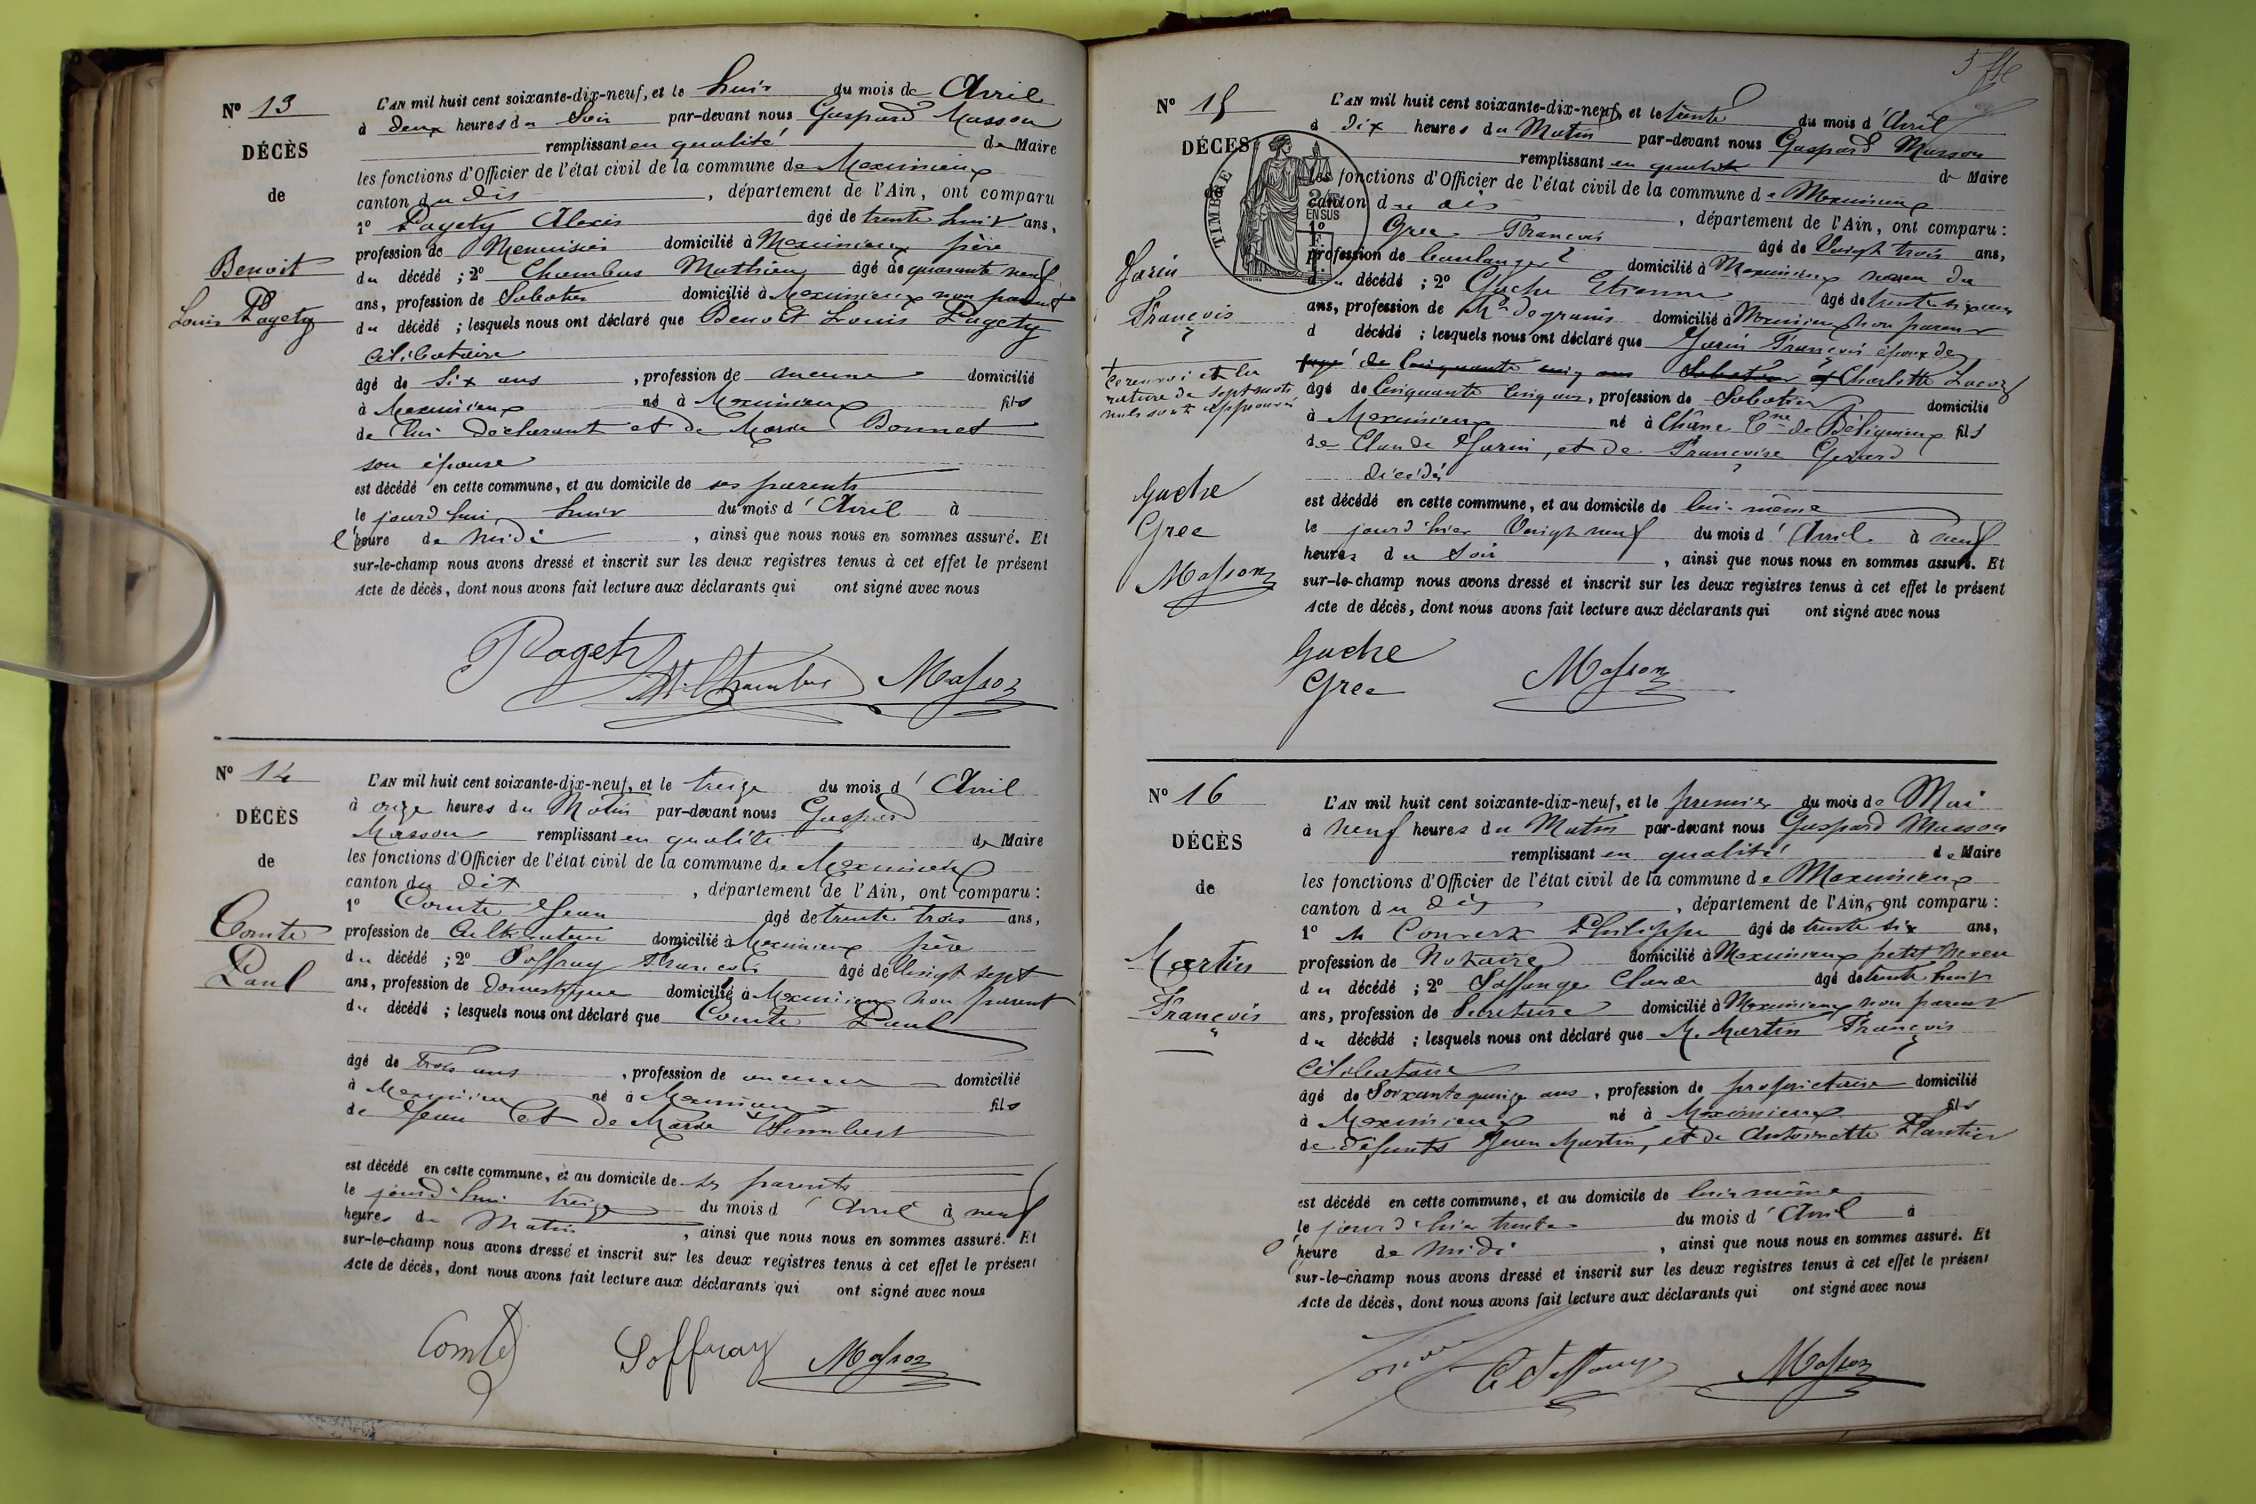 Nº 13
DÉCÈS
de
Benoit
Louis Pagety
L'AN mil huit cent soixante-dix-neuf, et le huit du mois de Avril
à deux heures du Soir par-devant nous Gaspard Masson
remplissant en qualité de Maire
les fonctions d'Officier de l'état civil de la commune de Meximieux
canton du dit, département de l'Ain, ont comparu
1º Pagety Alexis âgé de trente huit ans,
profession de Menuisier domicilié à Meximieux père
du décédé ; 2º Chambus Mathieu âgé de quarante neuf
ans, profession de Sabotier domicilié à Meximieux non parent
du décédé ; lesquels nous ont déclaré que Benoit Louis Pagety
célibataire
âgé de Six ans, profession de aucune domicilié
à Meximieux né à Meximieux fils
de lui déclarant et de Marie Bonnet
son épouse
est décédé en cette commune, et au domicile de ses parents
le jourd'hui huit du mois d'Avril à
l'heure de Midi, ainsi que nous nous en sommes assuré. Et
sur-le-champ nous avons dressé et inscrit sur les deux registres tenus à cet effet le présent
Acte de décès, dont nous avons fait lecture aux déclarants qui ont signé avec nous
Pagety M. Chambus Masson
Nº 14
DÉCÈS
de
Comte
Paul
L'AN mil huit cent soixante-dix-neuf, et le treize du mois d'Avril
à onze heures du Matin par-devant nous Gaspard
Masson remplissant en qualité de Maire
les fonctions d'Officier de l'état civil de la commune de Meximieux
canton du dit, département de l'Ain, ont comparu :
1º Comte Jean âgé de trente trois ans,
profession de Cultivateur domicilié à Meximieux père
du décédé ; 2º Soffray François âgé de Vingt sept
ans, profession de domestique domicilié à Meximieux non parent
du décédé ; lesquels nous ont déclaré que Comte Paul
âgé de trois ans, profession de aucune domicilié
à Meximieux né à Meximieux fils
de Jean et de Marie Humbert
est décédé en cette commune, et au domicile de ses parents
le jourd'hui treize du mois d'Avril à neuf
heures du Matin, ainsi que nous nous en sommes assuré. Et
sur-le-champ nous avons dressé et inscrit sur les deux registres tenus à cet effet le présent
Acte de décès, dont nous avons fait lecture aux déclarants qui ont signé avec nous
Comte Soffray Masson
5
Nº 15
DÉCÈS
de
TIMBRE
2/10 EN SUS
Jarin
François
Le renvoi et la
rature de sept mots
nuls sont approuvés
Guche
Grec
Masson
L'AN mil huit cent soixante-dix-neuf, et le trente du mois d'Avril
à dix heures du Matin par-devant nous Gaspard Masson
remplissant en qualité de Maire
les fonctions d'Officier de l'état civil de la commune de Meximieux
canton du dit, département de l'Ain, ont comparu :
1º Grec François âgé de Vingt trois ans,
profession de boulanger domicilié à Meximieux neveu du
du décédé ; 2º Guche Etienne âgé de trente six ans
ans, profession de Md de grains domicilié à Meximieux non parent
d décédé ; lesquels nous ont déclaré que Jarin François époux de
âgé de Cinquante cinq ans Sabotier Charlotte
âgé de Cinquante Cinq ans, profession de Sabotier domicilié
à Meximieux né à Chêne Cne de Béligneux fils
de Claude Jarin, et de Françoise Girard
décédés
est décédé en cette commune, et au domicile de lui-même
le jourd'hier Vingt neuf du mois d'Avril à neuf
heures du Soir, ainsi que nous nous en sommes assuré. Et
sur-le-champ nous avons dressé et inscrit sur les deux registres tenus à cet effet le présent
Acte de décès, dont nous avons fait lecture aux déclarants qui ont signé avec nous
Guche Masson
Grec
Nº 16
DÉCÈS
de
Martin
François
L'AN mil huit cent soixante-dix-neuf, et le premier du mois de Mai
à neuf heures du Matin par-devant nous Gaspard Masson
remplissant en qualité de Maire
les fonctions d'Officier de l'état civil de la commune de Meximieux
canton du dit, département de l'Ain, ont comparu :
1º M Convert Philippe âgé de trente six ans,
profession de Notaire domicilié à Meximieux petit neveu
du décédé ; 2º Saffange Claude âgé de trente huit
ans, profession de Secrétaire domicilié à Meximieux non parent
du décédé ; lesquels nous ont déclaré que M. Martin François
Célibataire
âgé de Soixante quinze ans, profession de propriétaire domicilié
à Meximieux né à Meximieux fils
de défunts Jean Martin, et de Antoinette Plantier
est décédé en cette commune, et au domicile de lui-même
le jourd'hier trente du mois d'Avril à
l'heure de Midi, ainsi que nous nous en sommes assuré. Et
sur-le-champ nous avons dressé et inscrit sur les deux registres tenus à cet effet le présent
Acte de décès, dont nous avons fait lecture aux déclarants qui ont signé avec nous
C Saffange Masson